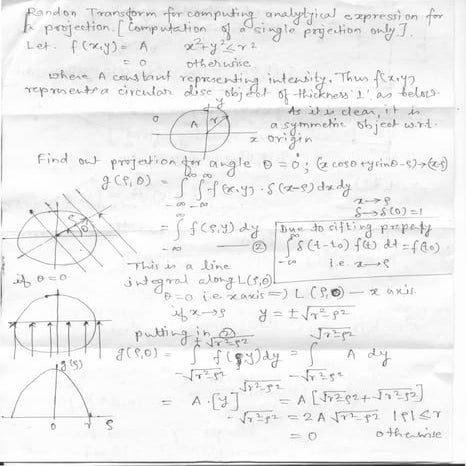 Randon Transform for computing analytyical expression for
a projection. [Computation of a single projection only].
Let. f(x,y) = A x²+y² ≤ r²
= 0 otherwise
where A constant representing intensity. Thus f(x,y)
represents a circular disc object of thickness '1', as below.
y
As it is clear, it is
a symmetric object w.r.t.
origin
0 A r
x
Find out projection for angle θ = 0°; (x cosθ + y sinθ - ρ) → (x-ρ)
g(ρ,θ) = ∫∞-∞ ∫∞-∞ f(x,y) · δ(x-ρ) dx dy
x → ρ
δ → δ(0) = 1
= ∫∞-∞ f(ρ,y) dy — ②
Due to sifting property
∫∞-∞ δ(t-t₀) f(t) dt = f(t₀)
i.e. x → ρ
This is a line
integral along L(ρ,θ)
if θ = 0
θ = 0 i.e. x axis ⇒ L(ρ,0) – x axis
if x → ρ y = ± √r²-ρ²
putting in ②
g(ρ,0) = ∫√r²-ρ² -√r²-ρ² f(ρ,y) dy = ∫√r²-ρ² -√r²-ρ² A dy
= A·[y]√r²-ρ² -√r²-ρ² = A[√r²-ρ² + √r²-ρ²]
= 2A √r²-ρ² |ρ| ≤ r
= 0 otherwise
g(ρ)
0 r ρ